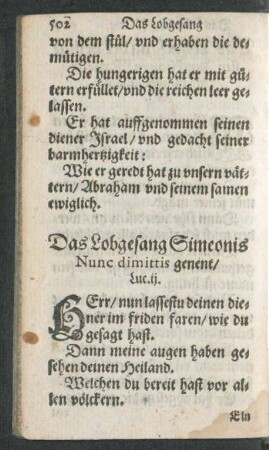 502 Das Lobgesang
von dem stůl/ vnd erhaben die de-
mütigen.
Die hungerigen hat er mit gü-
tern erfüllet/vnd die reichen leer ge-
lassen.
Er hat auffgenommen seinen
diener Jsrael/ vnd gedacht seiner
barmhertzigkeit:
Wie er geredt hat zu vnsern vät-
tern/ Abraham vnd seinem samen
ewiglich.
Das Lobgesang Simeonis
Nunc dimittis genent/
Luc.ij.
HErr/ nun lassestu deinen die-
ner im friden faren/ wie du
gesagt hast.
Dann meine augen haben ge-
sehen deinen Heiland.
Welchen du bereit hast vor al-
len völckern.
Ein